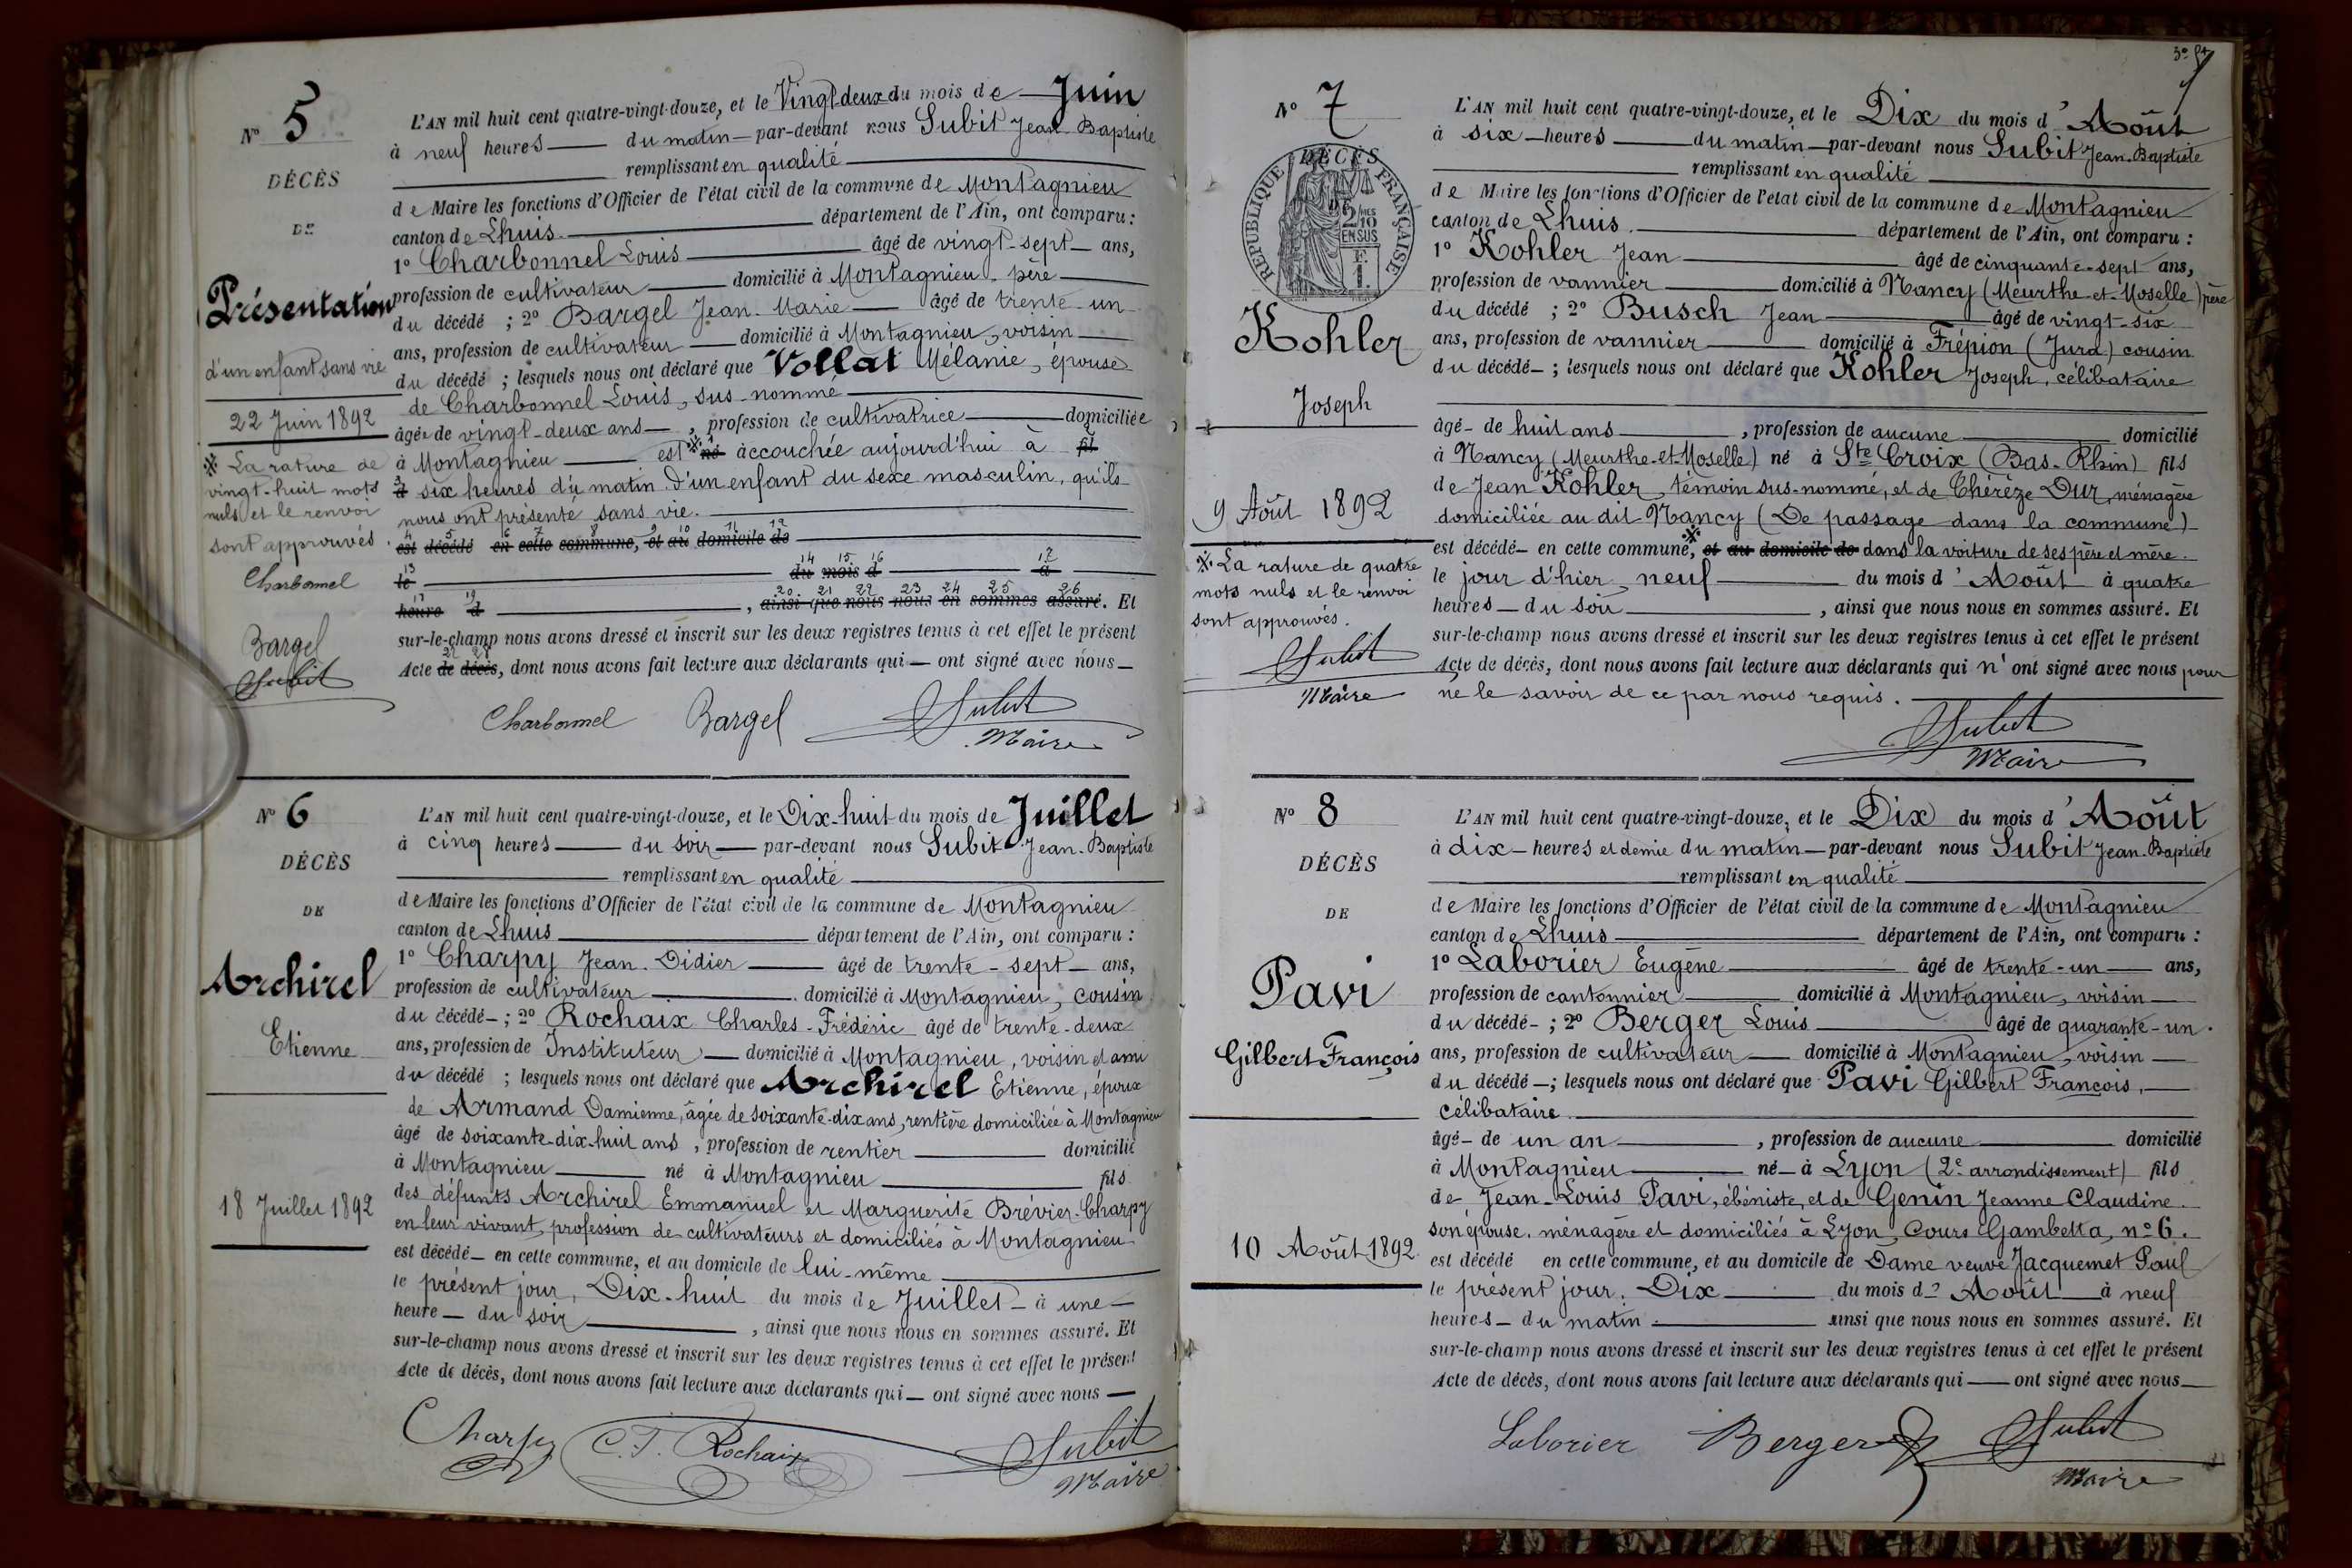 N° 5
DÉCÈS
DE
Présentation
d'un enfant sans vie
22 Juin 1892
※ La rature de
vingt-huit mots
nuls et le renvoi
sont approuvés.
Charbonnel
Bargel
Subit
L'AN mil huit cent quatre-vingt-douze, et le Vingt-deux du mois de Juin
à neuf heures du matin par-devant nous Subit Jean-Baptiste
remplissant en qualité
de Maire les fonctions d'Officier de l'état civil de la commune de Montagnieu
canton de Lhuis département de l'Ain, ont comparu :
1° Charbonnel Louis âgé de vingt-sept ans,
profession de cultivateur domicilié à Montagnieu, père
du décédé ; 2° Bargel Jean-Marie âgé de trente-un
ans, profession de cultivateur domicilié à Montagnieu, voisin
du décédé ; lesquels nous ont déclaré que Vollat Mélanie, épouse
de Charbonnel Louis, sus-nommé
âgée de vingt-deux ans, profession de cultivatrice domiciliée
à Montagnieu est ※ né accouchée aujourd'hui à fil
d six heures du matin d'un enfant du sexe masculin, qu'ils
nous ont présenté sans vie.
est décédé en cette commune, et au domicile de
le du mois d à
heure d , ainsi que nous nous en sommes assuré. Et
sur-le-champ nous avons dressé et inscrit sur les deux registres tenus à cet effet le présent
Acte de décès, dont nous avons fait lecture aux déclarants qui ont signé avec nous
Charbonnel Bargel Subit
Maire
N° 6
DÉCÈS
DE
Archirel
Etienne
18 Juillet 1892
L'AN mil huit cent quatre-vingt-douze, et le Dix-huit du mois de Juillet
à cinq heures du soir par-devant nous Subit Jean-Baptiste
remplissant en qualité
de Maire les fonctions d'Officier de l'état civil de la commune de Montagnieu
canton de Lhuis département de l'Ain, ont comparu :
1° Charpy Jean-Didier âgé de trente-sept ans,
profession de cultivateur domicilié à Montagnieu, cousin
du décédé ; 2° Rochaix Charles-Frédéric âgé de trente-deux
ans, profession de Instituteur domicilié à Montagnieu, voisin et ami
du décédé ; lesquels nous ont déclaré que Archirel Etienne, époux
de Armand Damienne, âgée de soixante-dix ans, rentière domiciliée à Montagnieu
âgé de soixante-dix-huit ans, profession de rentier domicilié
à Montagnieu né à Montagnieu fils
des défunts Archirel Emmanuel et Marguerite Brévier-Charpy
en leur vivant, profession de cultivateurs et domiciliés à Montagnieu
est décédé en cette commune, et au domicile de lui-même
le présent jour, Dix-huit du mois de Juillet à une
heure du soir, ainsi que nous nous en sommes assuré. Et
sur-le-champ nous avons dressé et inscrit sur les deux registres tenus à cet effet le présent
Acte de décès, dont nous avons fait lecture aux déclarants qui ont signé avec nous
Charpy C. F. Rochaix Subit
Maire
N° 7
DÉCÈS
RÉPUBLIQUE FRANÇAISE
DE
2/10 MES
EN SUS
F.
1.
Kohler
Joseph
9 Août 1892
※ La rature de quatre
mots nuls et le renvoi
sont approuvés.
Subit
Maire
L'AN mil huit cent quatre-vingt-douze, et le Dix du mois d'Août
à six heures du matin par-devant nous Subit Jean-Baptiste
remplissant en qualité
de Maire les fonctions d'Officier de l'état civil de la commune de Montagnieu
canton de Lhuis. département de l'Ain, ont comparu :
1° Kohler Jean âgé de cinquante-sept ans,
profession de vannier domicilié à Nancy (Meurthe-et-Moselle) père
du décédé ; 2° Busch Jean âgé de vingt-six
ans, profession de vannier domicilié à Frépion (Jura) cousin
du décédé ; lesquels nous ont déclaré que Kohler Joseph, célibataire
âgé de huit ans, profession de aucune domicilié
à Nancy (Meurthe-et-Moselle) né à Ste Croix (Bas-Rhin) fils
de Jean Kohler, témoin sus-nommé, et de Chérèze Dur, ménagère
domiciliée au dit Nancy (De passage dans la commune)
est décédé en cette commune, ※ et au domicile de dans la voiture de ses père et mère.
le jour d'hier neuf du mois d'Août à quatre
heures du soir, ainsi que nous nous en sommes assuré. Et
sur-le-champ nous avons dressé et inscrit sur les deux registres tenus à cet effet le présent
Acte de décès, dont nous avons fait lecture aux déclarants qui n'ont signé avec nous pour
ne le savoir de ce par nous requis.
Subit
Maire
N° 8
DÉCÈS
DE
Pavi
Gilbert François
10 Août 1892
L'AN mil huit cent quatre-vingt-douze, et le Dix du mois d'Août
à dix heures et demie du matin par-devant nous Subit Jean-Baptiste
remplissant en qualité
de Maire les fonctions d'Officier de l'état civil de la commune de Montagnieu
canton de Lhuis département de l'Ain, ont comparu :
1° Laborier Eugène âgé de trente-un ans,
profession de cantonnier domicilié à Montagnieu, voisin
du décédé ; 2° Berger Louis âgé de quarante-un
ans, profession de cultivateur domicilié à Montagnieu, voisin
du décédé ; lesquels nous ont déclaré que Pavi Gilbert François,
célibataire
âgé de un an, profession de aucune domicilié
à Montagnieu né à Lyon (2e arrondissement) fils
de Jean-Louis Pavi, ébéniste, et de Genin Jeanne Claudine
son épouse, ménagère et domiciliés à Lyon, Cours Gambetta, n° 6.
est décédé en cette commune, et au domicile de Dame veuve Jacquemet Paul
le présent jour, Dix du mois d'Août à neuf
heures du matin ainsi que nous nous en sommes assuré. Et
sur-le-champ nous avons dressé et inscrit sur les deux registres tenus à cet effet le présent
Acte de décès, dont nous avons fait lecture aux déclarants qui ont signé avec nous
Laborier Berger Subit
Maire